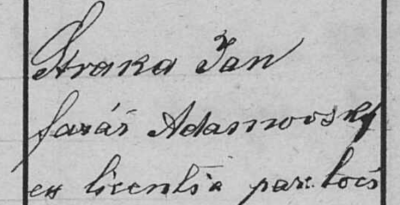 Straka Jan
farár Adamovský
ex licentia par. loci